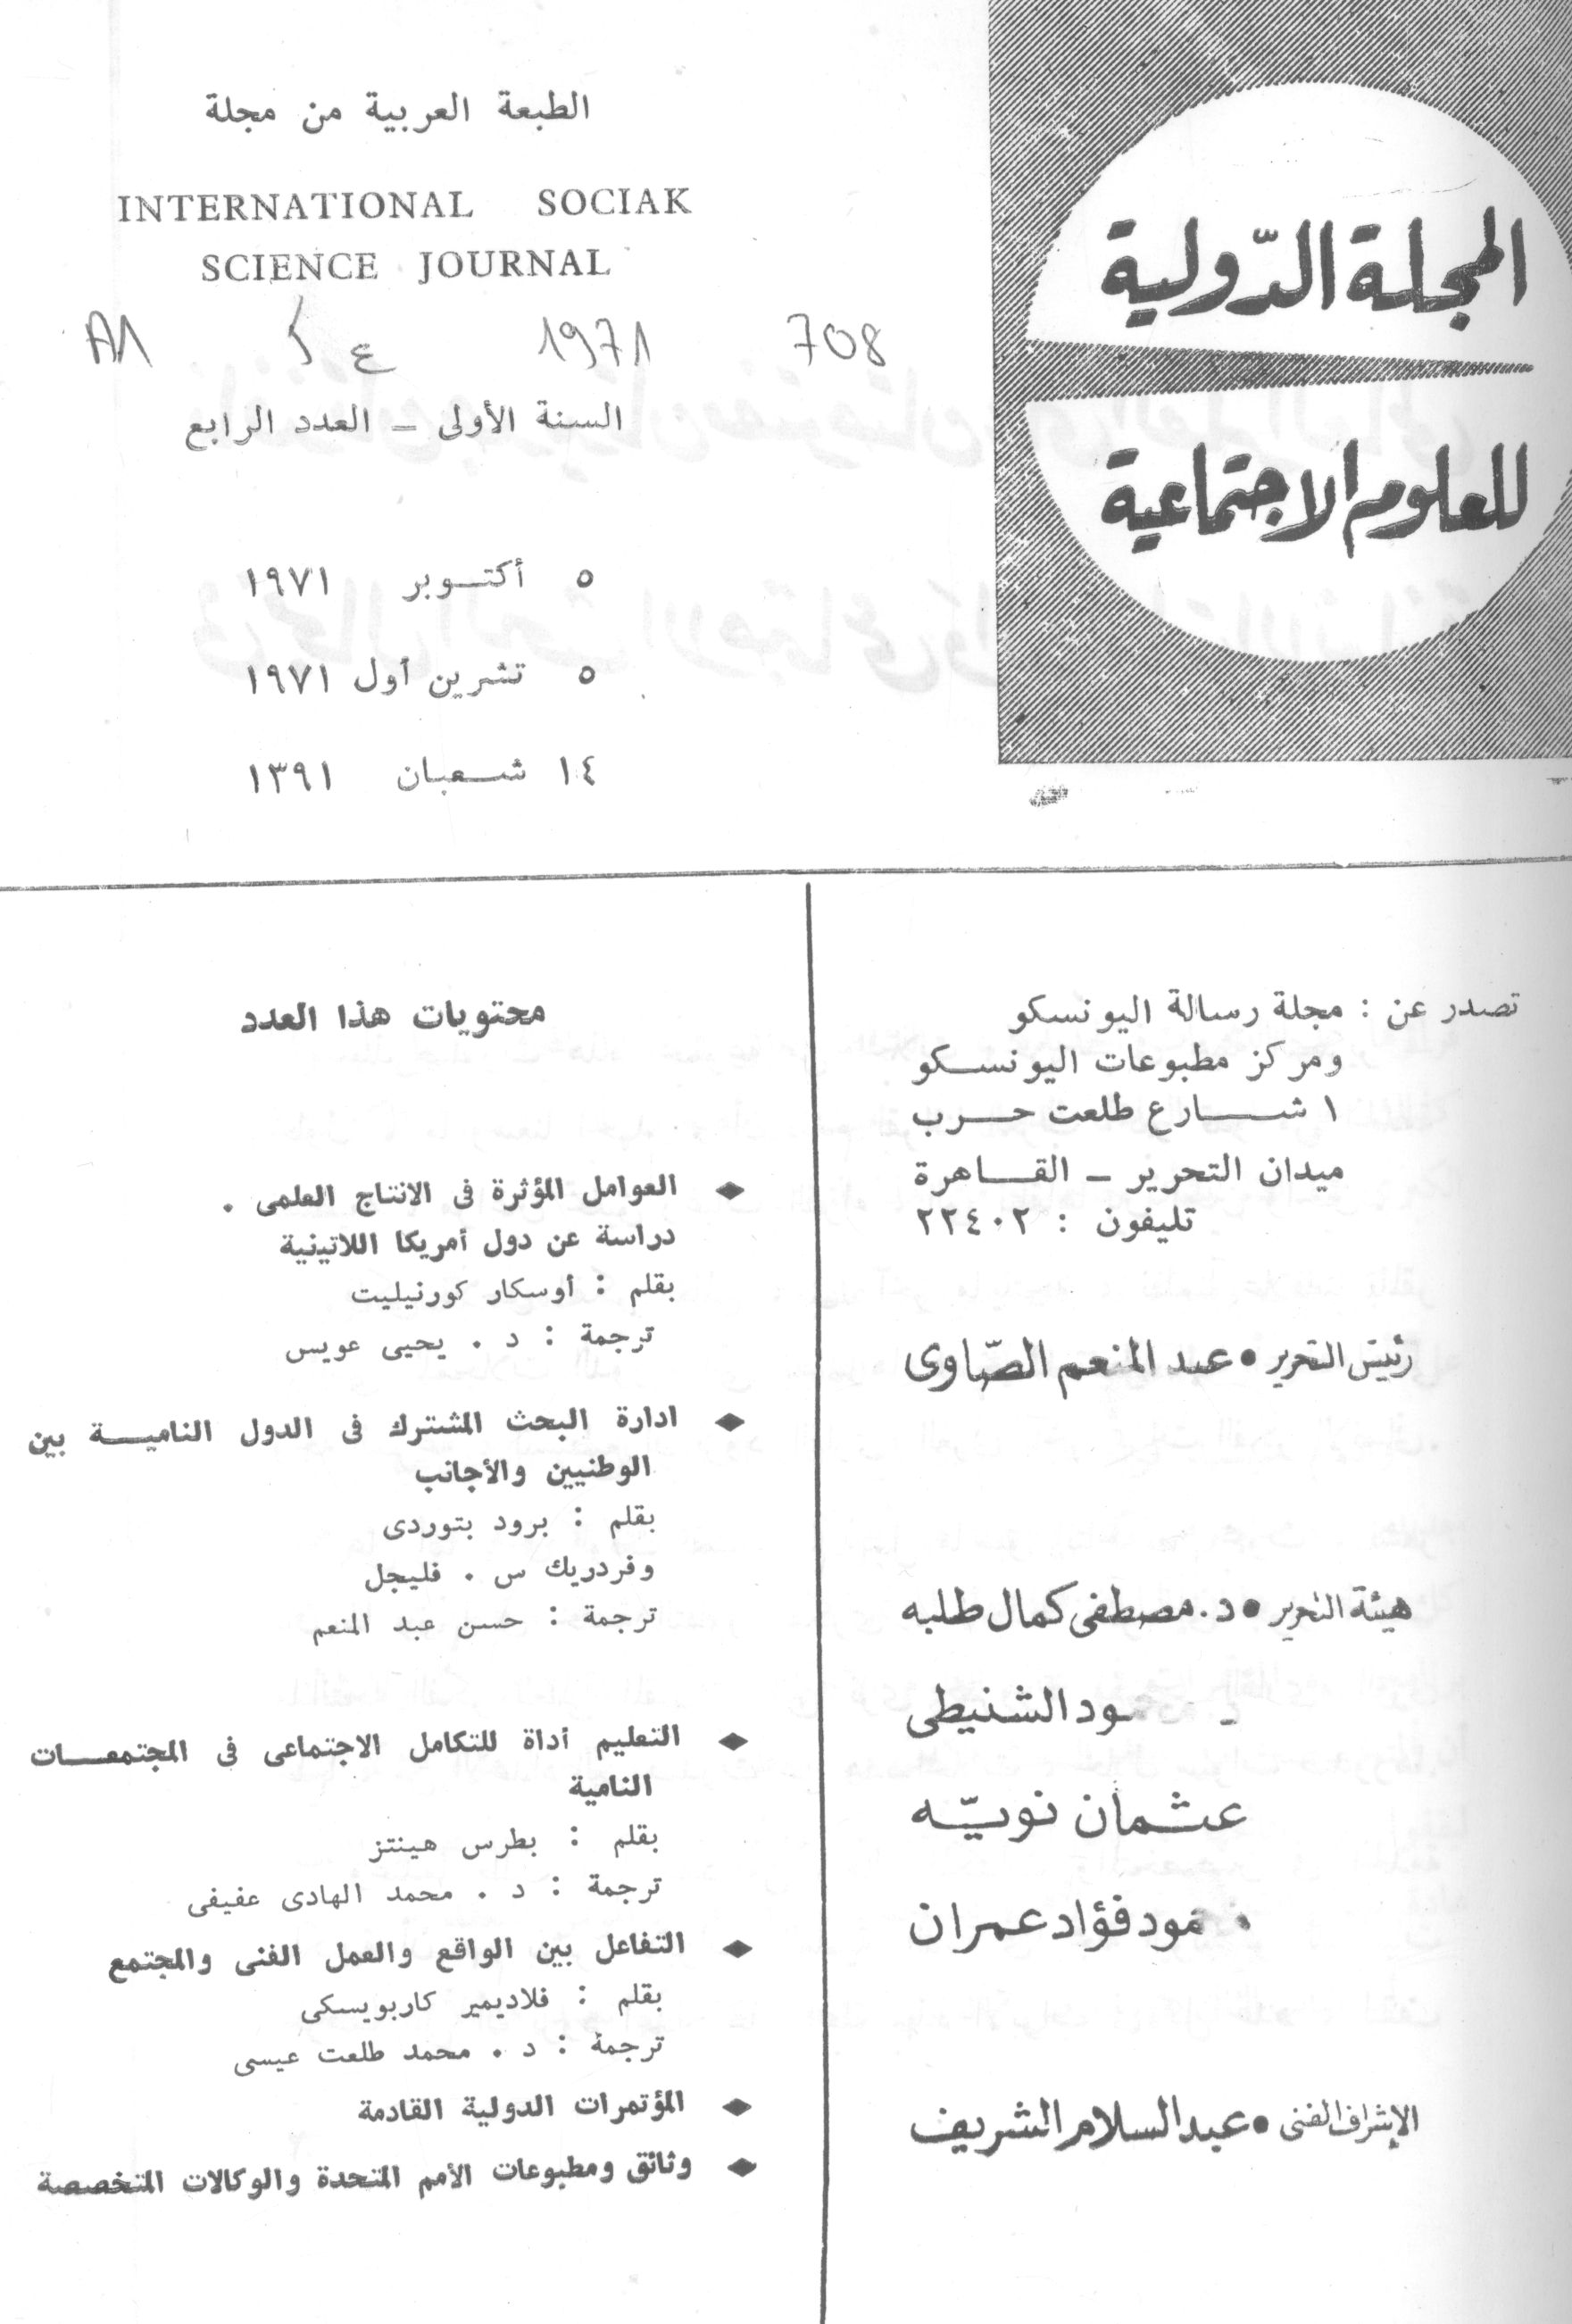 المجلة الدّولية
للعلوم الاجتماعية
الطبعة العربية من مجلة
INTERNATIONAL SOCIAK
SCIENCE JOURNAL
708 1971 ع
السنة الأولى – العدد الرابع
٥ أكتوبر ١٩٧١
٥ تشرين أول ١٩٧١
١٤ شعبان ١٣٩١
تصدر عن : مجلة رسالة اليونسكو
ومركز مطبوعات اليونسكو
١ شارع طلعت حرب
ميدان التحرير – القاهرة
تليفون : ٢٢٤٠٢
رئيس التحرير • عبد المنعم الصّاوى
هيئة التحرير • د. مصطفى كمال طلبه
الشنيطى
عثمان نويّه
فؤاد عمران
الإشراف الفنى • عبد السلام الشريف
محتويات هذا العدد
◆ العوامل المؤثرة فى الانتاج العلمى .
دراسة عن دول أمريكا اللاتينية
بقلم : أوسكار كورنيليت
ترجمة : د . يحيى عويس
◆ ادارة البحث المشترك فى الدول النامية بين
الوطنيين والأجانب
بقلم : برود بتوردى
وفردريك س . فليجل
ترجمة : حسن عبد المنعم
◆ التعليم أداة للتكامل الاجتماعى فى المجتمعات
النامية
بقلم : بطرس هينتز
ترجمة : د . محمد الهادى عفيفى
◆ التفاعل بين الواقع والعمل الفنى والمجتمع
بقلم : فلاديمير كاربويسكى
ترجمة : د . محمد طلعت عيسى
◆ المؤتمرات الدولية القادمة
◆ وثائق ومطبوعات الأمم المتحدة والوكالات المتخصصة